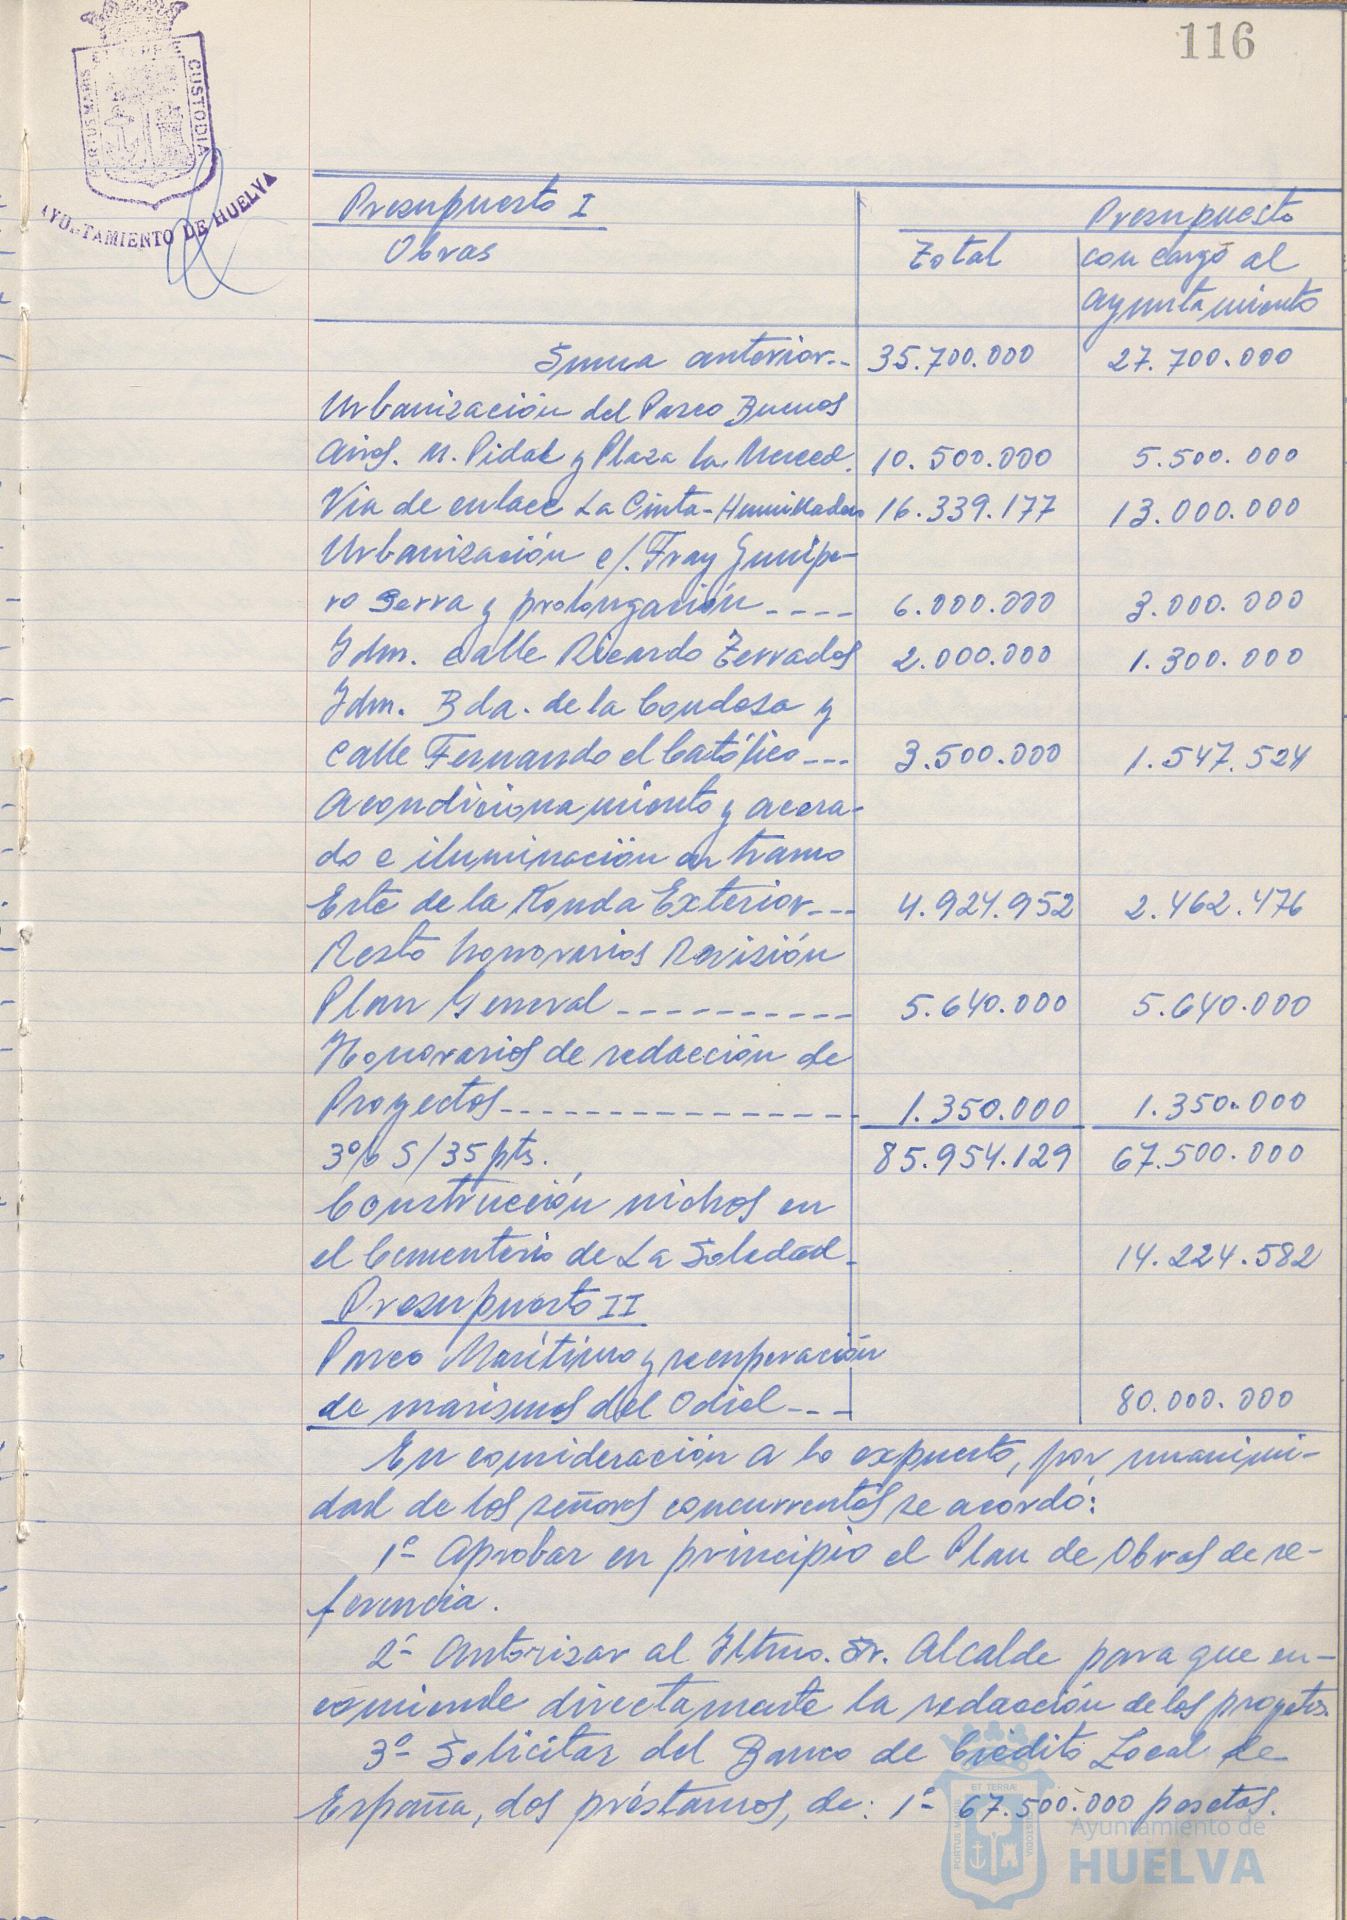 116
PORTUS MARIS CUSTODIA
AYUNTAMIENTO DE HUELVA
Presupuesto I Presupuesto
Obras Total con cargo al
ayuntamiento
Suma anterior.. 35.700.000 27.700.000
Urbanización del Paseo Buenos
Aires. M. Pidal y Plaza la Merced. 10.500.000 5.500.000
Via de enlace La Cinta-Humilladero 16.339.177 13.000.000
Urbanización c/. Fray Junipe-
ro Serra y prolongación ---- 6.000.000 3.000.000
Idm. calle Ricardo Terrados 2.000.000 1.300.000
Idm. Bda. de la Condesa y
calle Fernando el Católico --- 3.500.000 1.547.524
Acondicionamiento y acera-
do e iluminación en tramo
Este de la Ronda Exterior --- 4.924.952 2.462.476
Resto honorarios Revisión
Plan General ---------- 5.640.000 5.640.000
Honorarios de redacción de
Proyectos --------------- 1.350.000 1.350.000
3% S/35 pts. 85.954.129 67.500.000
Construcción nichos en
el Cementerio de La Soledad 14.224.582
Presupuesto II
Paseo Marítimo y recuperación
de marismas del Odiel --- 80.000.000
En consideración a lo expuesto, por unanimi-
dad de los señores concurrentes se acordó:
1º- Aprobar en principio el Plan de Obras de re-
ferencia.
2º- Autorizar al Iltmo. Sr. Alcalde para que en-
comiende directamente la redacción de los proyectos.
3º- Solicitar del Banco de Crédito Local de
España, dos préstamos, de: 1º- 67.500.000 pesetas.
Ayuntamiento de
HUELVA